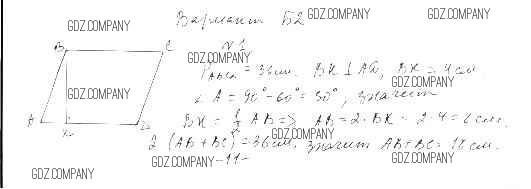 Вариант Б2
GDZ.COMPANY
GDZ.COMPANY
GDZ.COMPANY
№1
GDZ.COMPANY
B C
P ABCD = 36 см. BK ⊥ AD, BK = 4 см.
GDZ.COMPANY
GDZ.COMPANY
∠A = 90° - 60° = 30°, значит
A K D
BK = 1/2 AB => AB = 2 · BK = 2 · 4 = 8 см.
GDZ.COMPANY
2 (AB + BC) = 36 см, значит AB + BC = 18 см.
GDZ.COMPANY
GDZ.COMPANY
GDZ.COMPANY
-11-